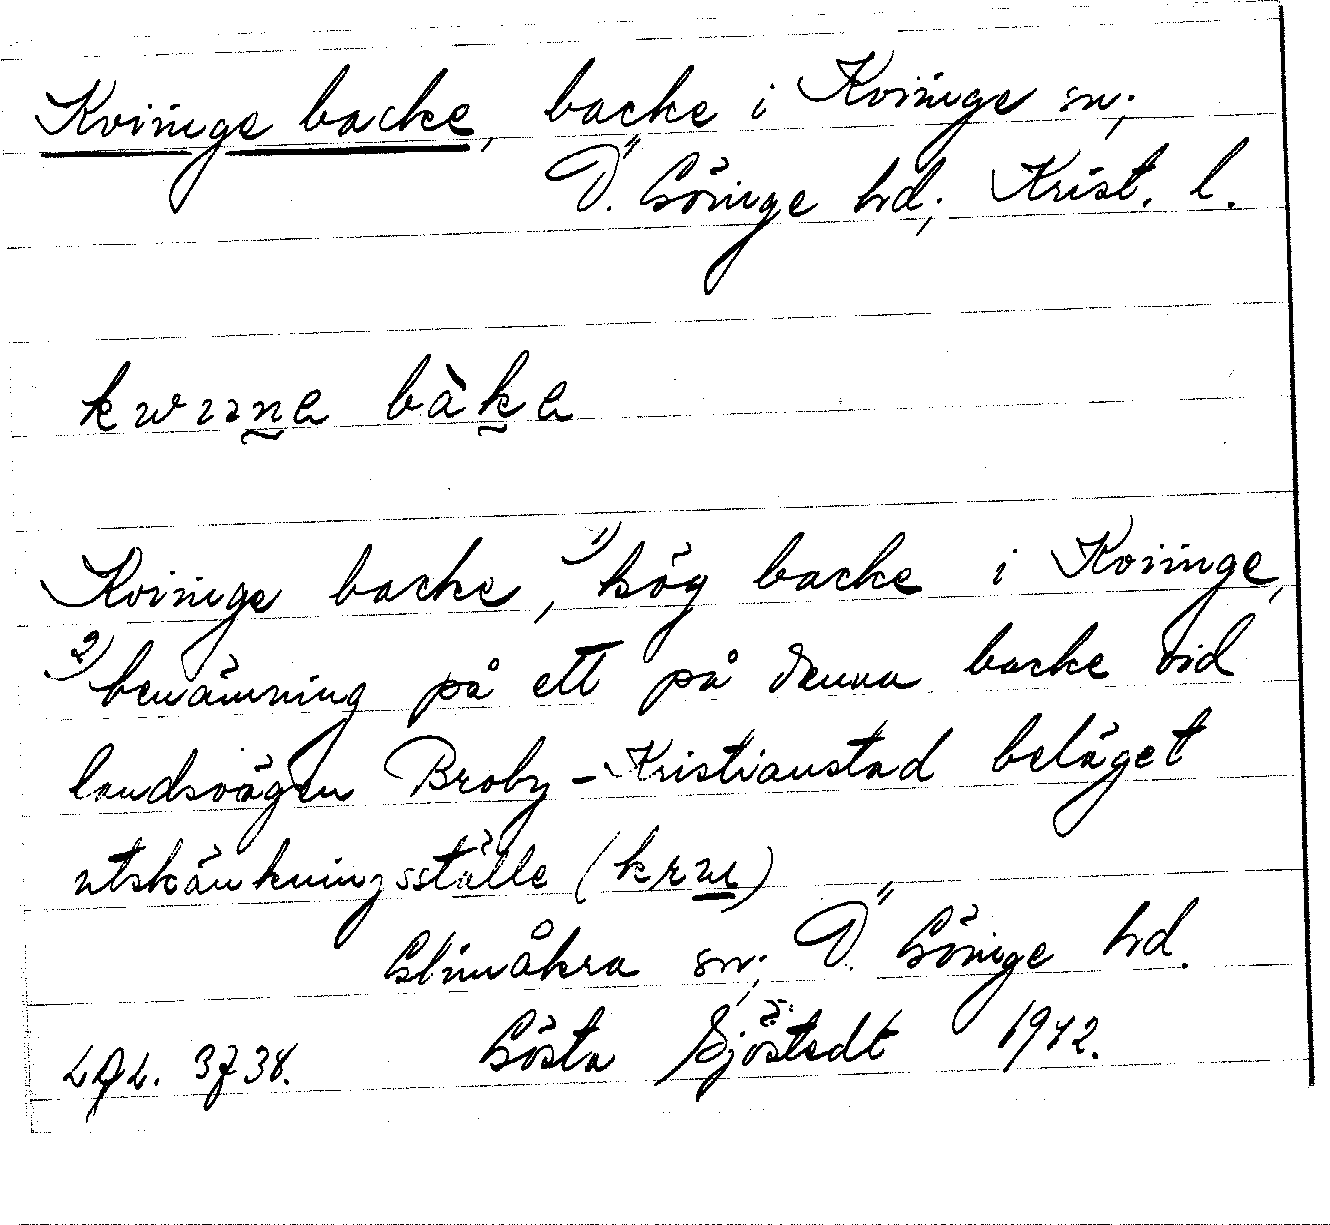 Kviinge backe, backe i Kviinge sn;
Ö. Göinge hd; Krist. l.
Kviinge backe, 1) hög backe i Kviinge,
2) benämning på ett på denna backe vid
landsvägen Broby-Kristianstad beläget
utskänkningsställe
Glimåkra sn; Ö. Göinge hd.
Gösta Sjöstedt 1942.